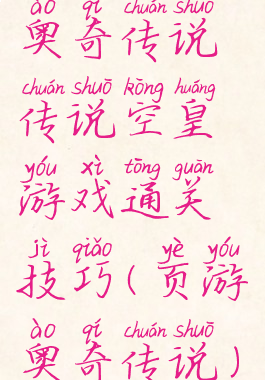 ào qí chuán shuō
奥奇传说
chuán shuō kōng huáng
传说空皇
yóu xì tōng guān
游戏通关
jì qiǎo yè yóu
技巧(页游
ào qí chuán shuō
奥奇传说)